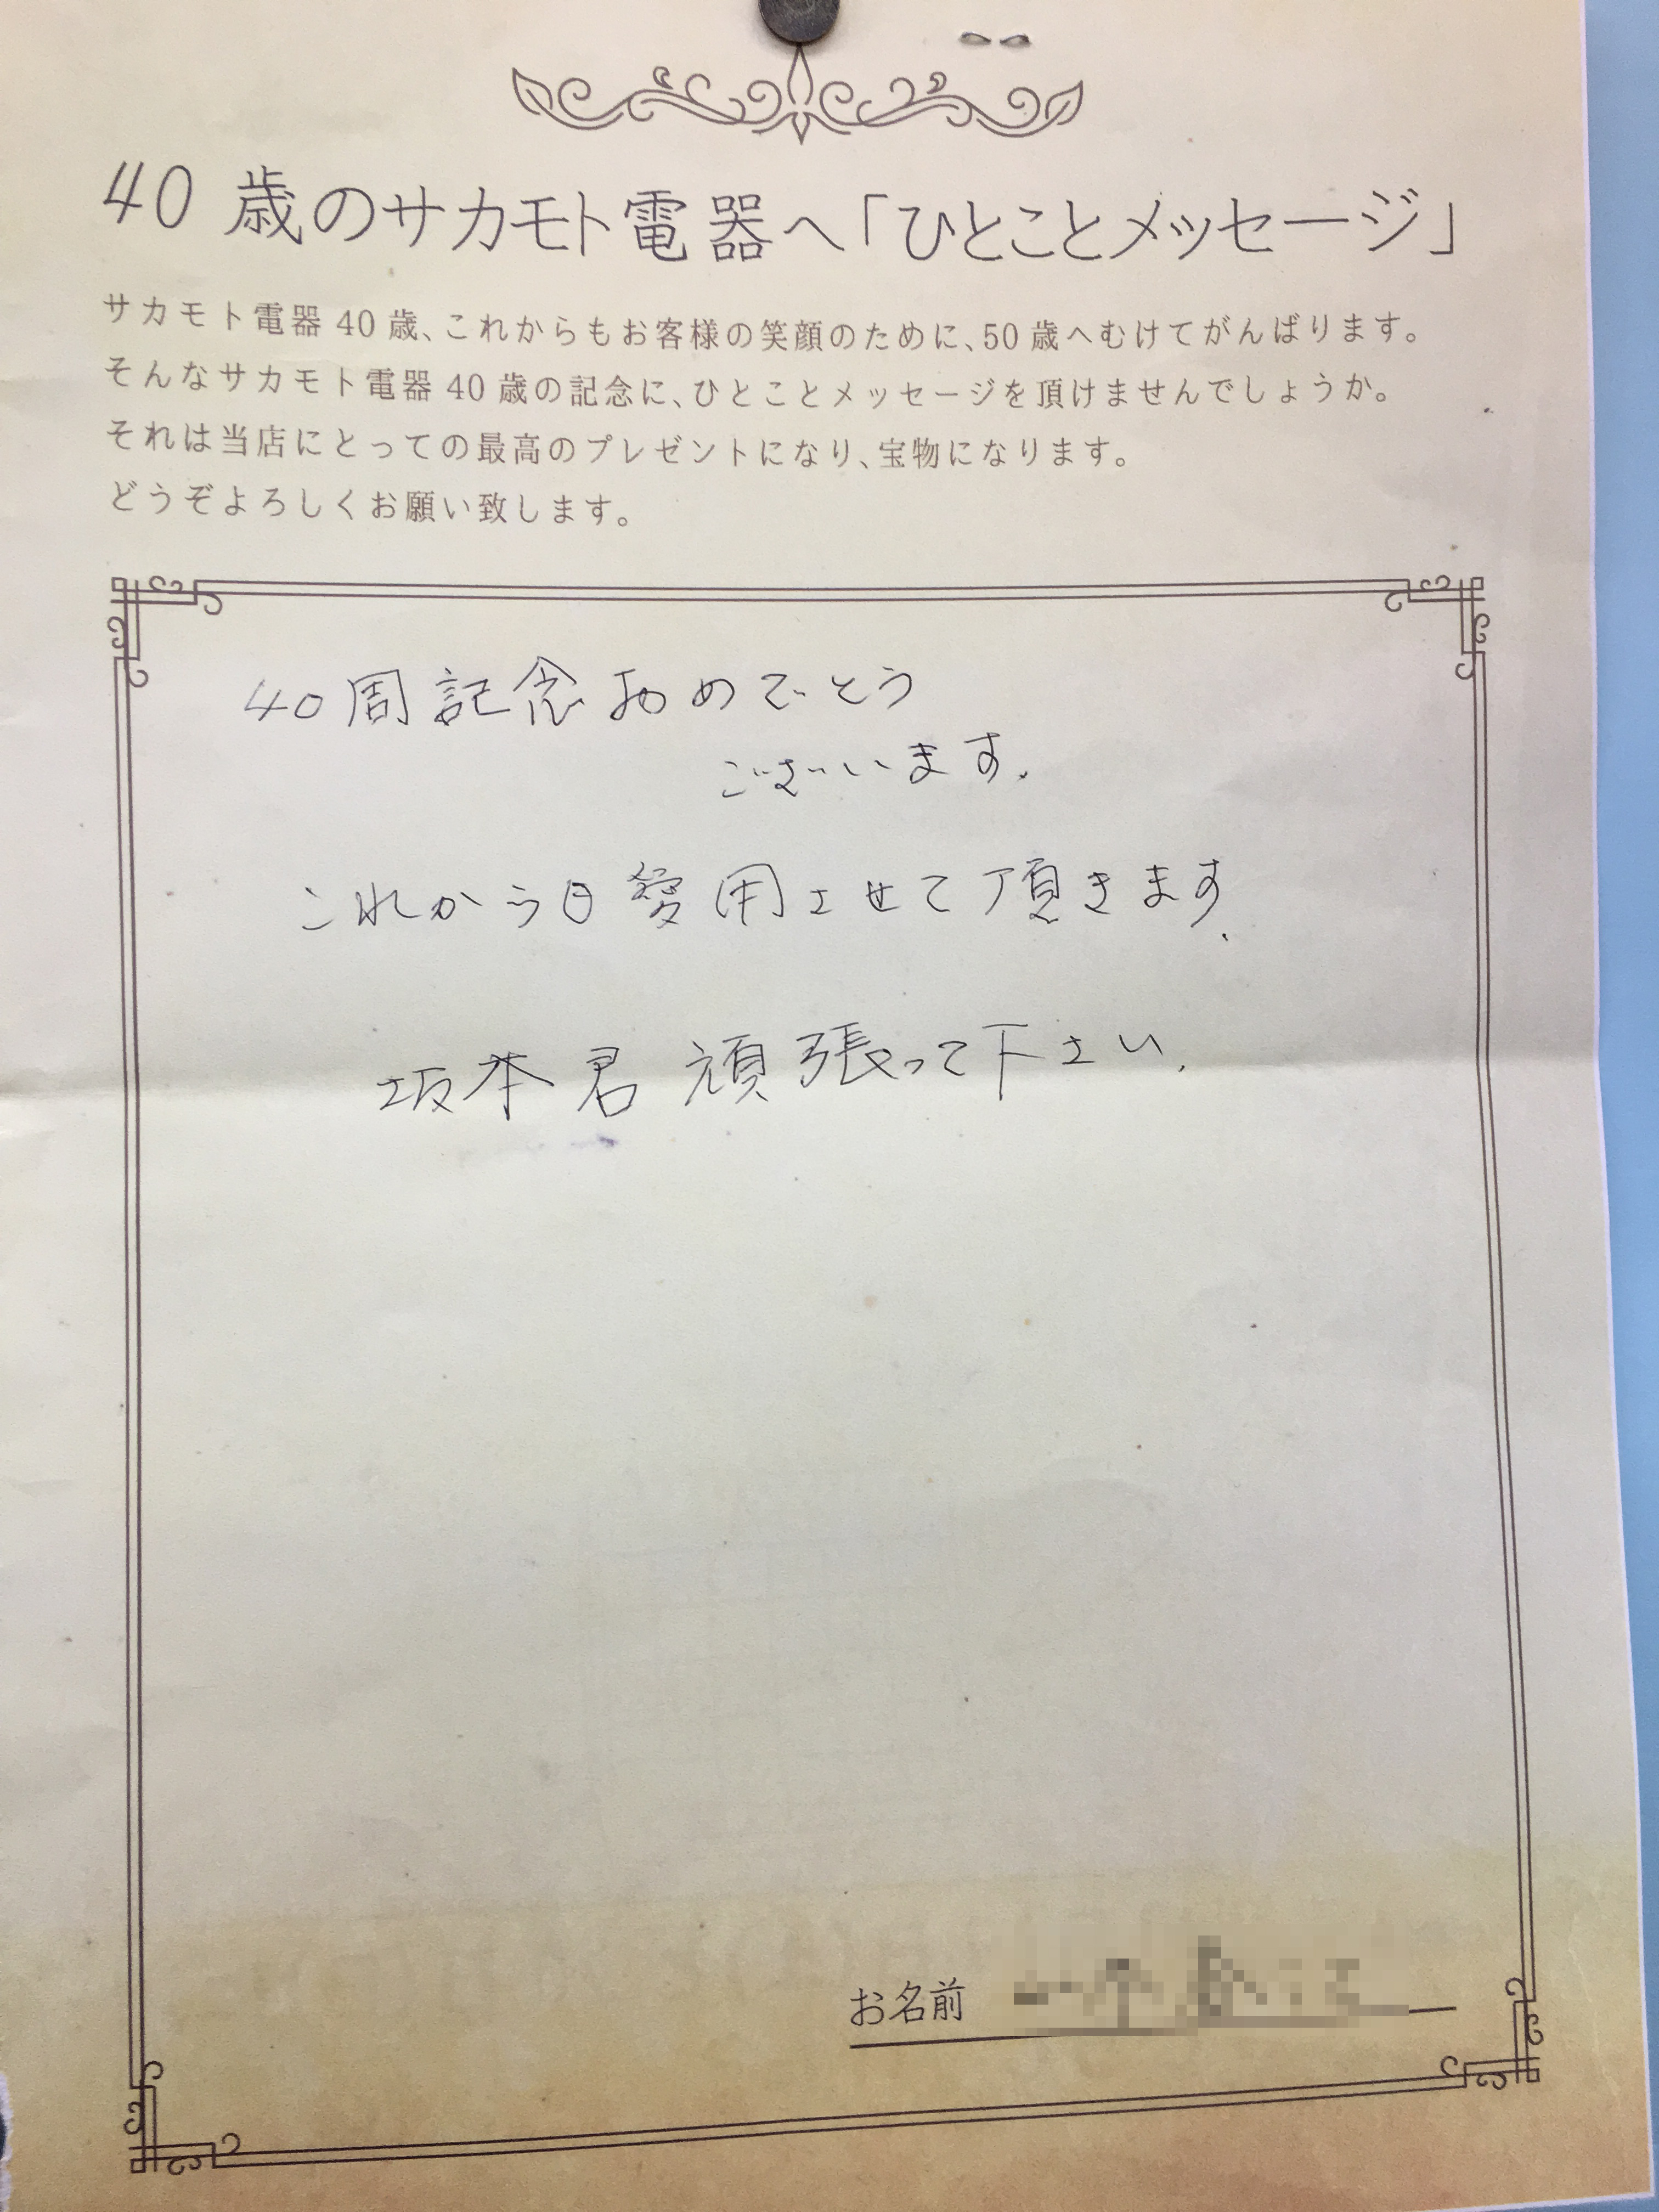 40歳のサカモト電器へ「ひとことメッセージ」
サカモト電器40歳、これからもお客様の笑顔のために、50歳へむけてがんばります。
そんなサカモト電器40歳の記念に、ひとことメッセージを頂けませんでしょうか。
それは当店にとっての最高のプレゼントになり、宝物になります。
どうぞよろしくお願い致します。
40周記念おめでとう
ございます.
これから日愛用させて頂きます.
坂本君頑張って下さい.
お名前